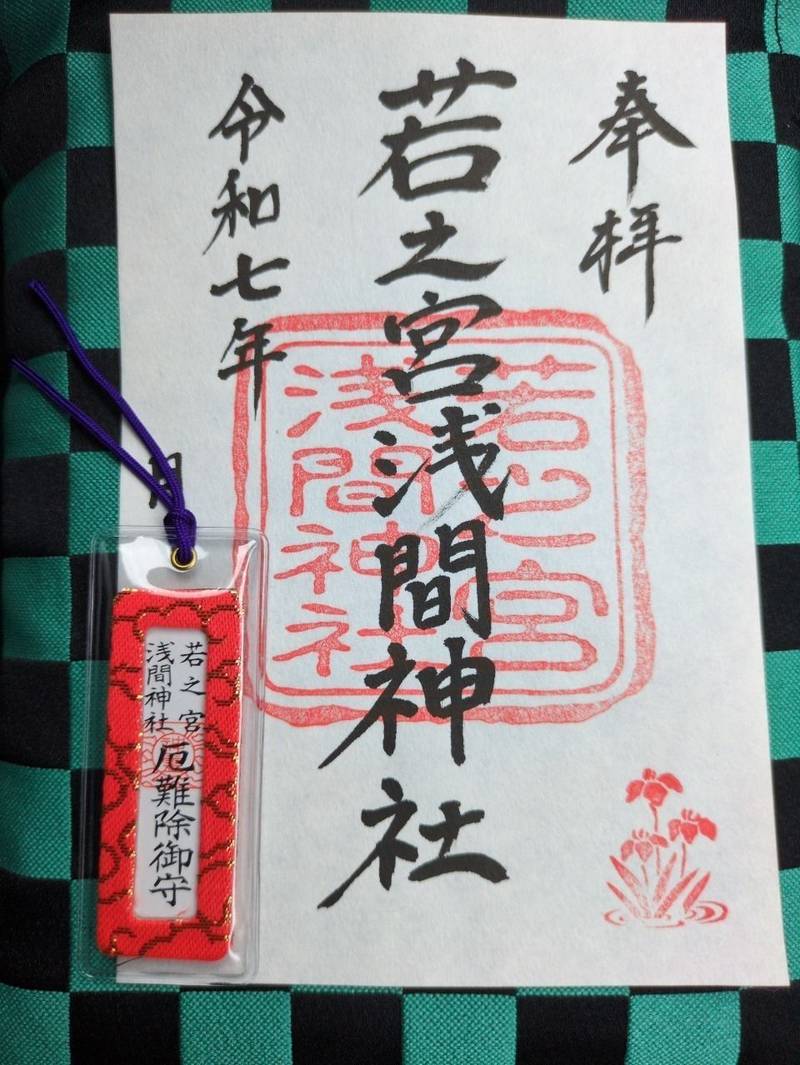 奉拝
若之宮浅間神社
令和七年
月
若之宮
浅間神社
若之宮
浅間神社
厄難除御守